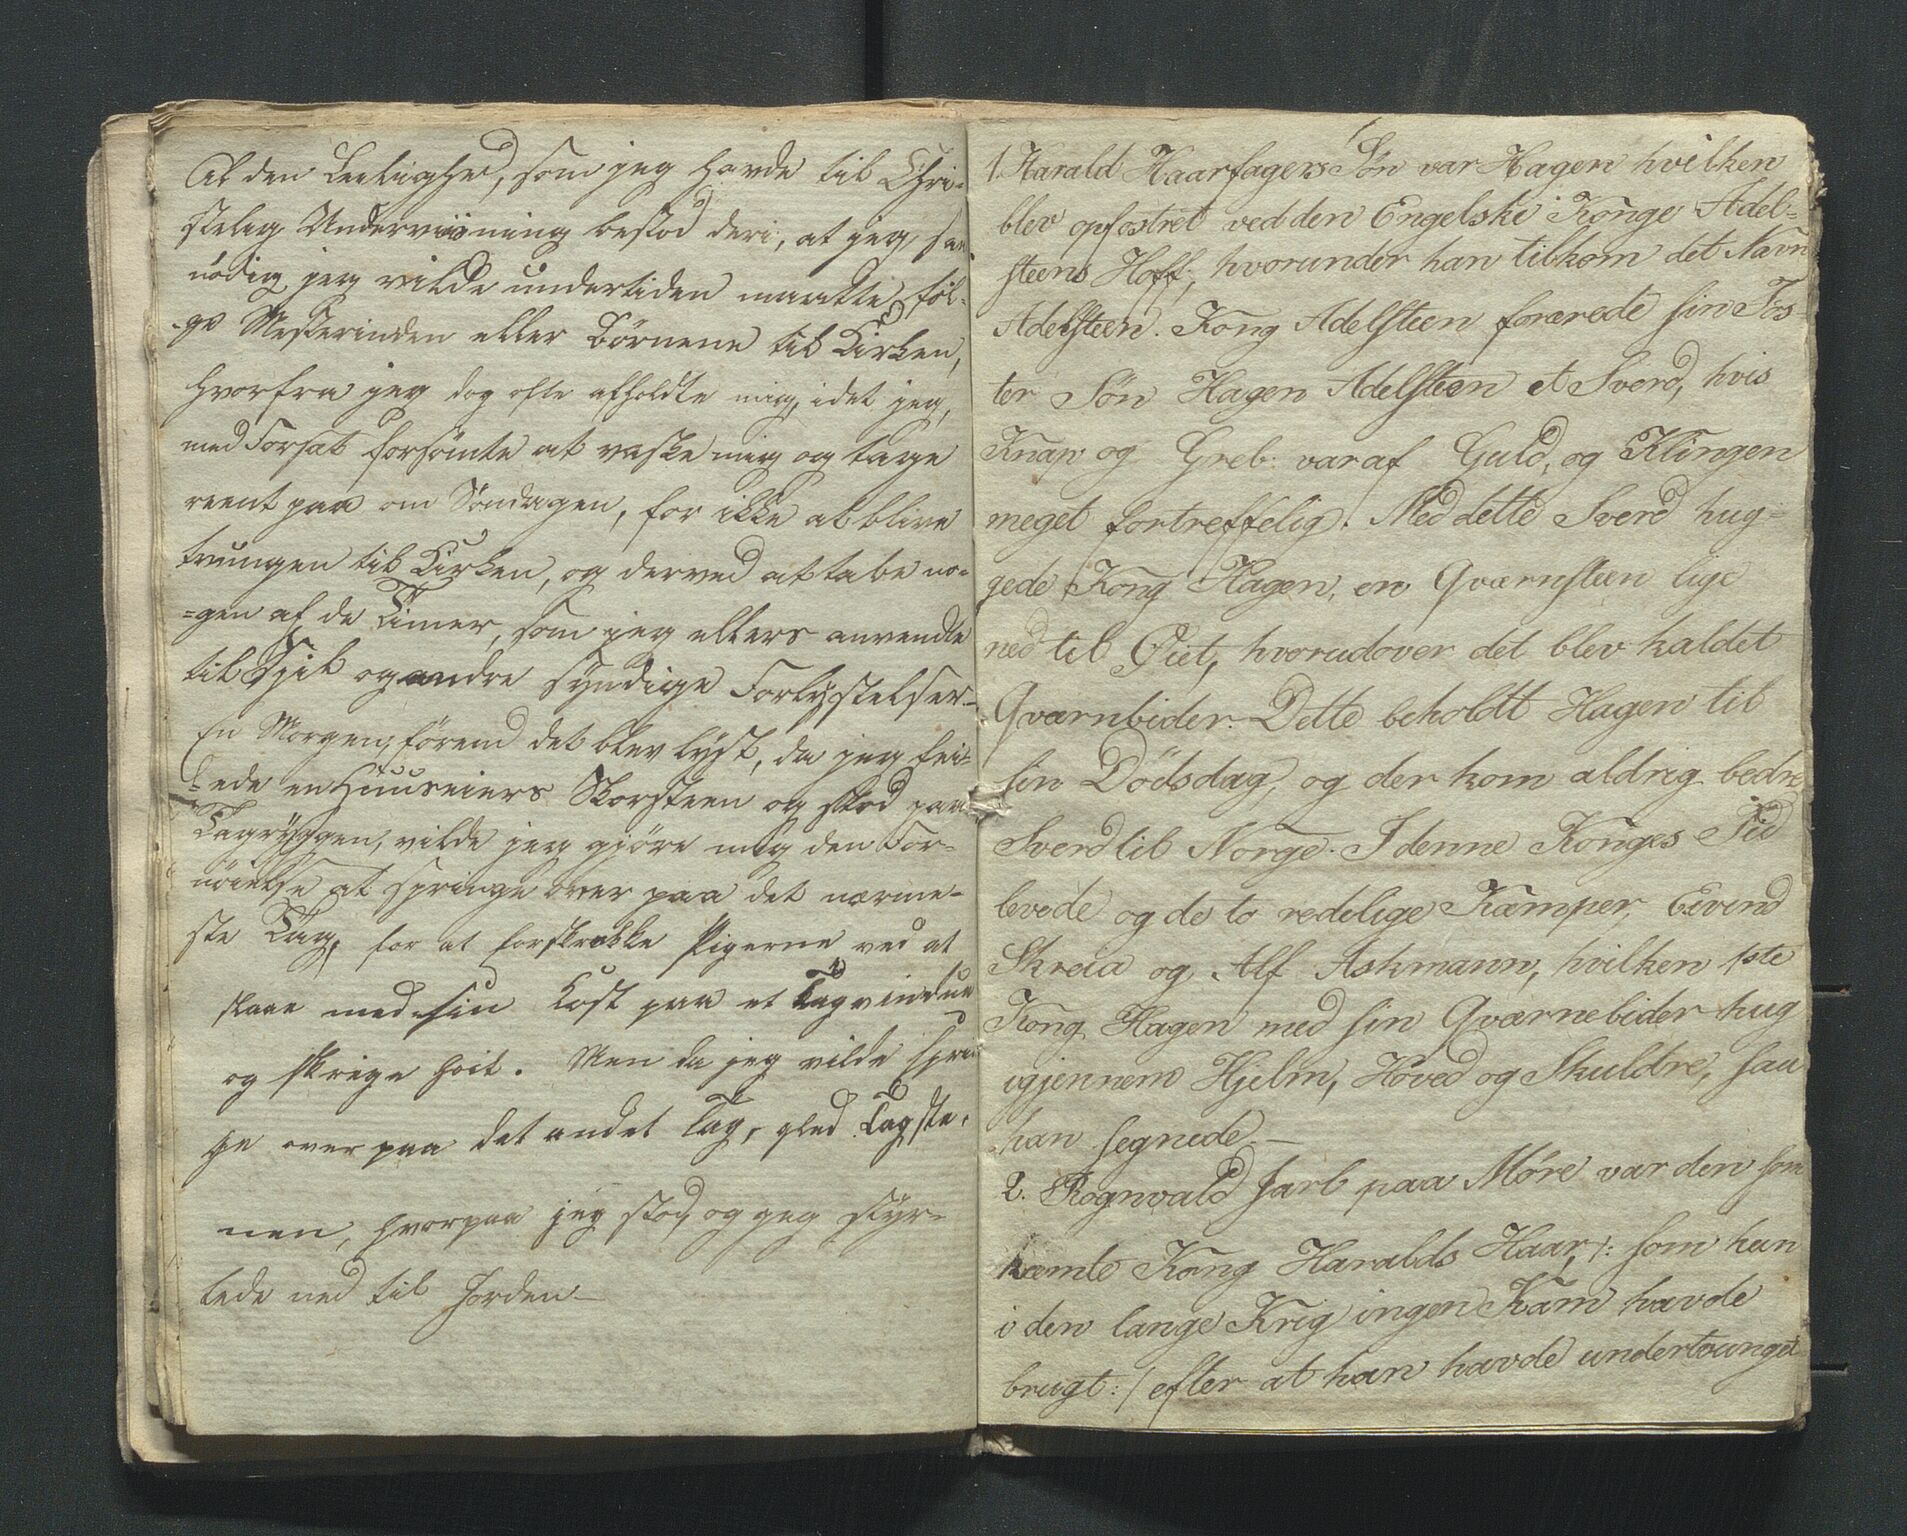 Al den Leilighed, som jeg havde til Chri-
stelig Underviisning bestod deri, at jeg, saa
nödig jeg vilde undertiden maatte föl-
-ge Mesterinden eller Börnene til Kirken,
hvorfra jeg dog ofte afholdte mig, idet jeg,
med Forsæt forsömte at vaske mig og tage
reent paa om Söndagen, for ikke at blive
tvungen til Kirken, og derved at tabe no-
=gen af de Timer, som jeg ellers anvendte
til Spil og andre syndige Forlystelser.-
En Morgen, förend det blev lyst, da jeg fei-
=ede en Huuseiers Skorsteen og stod paa
Tagryggen, vilde jeg gjöre mig den For-
nöielse at springe over paa det nærme-
ste Tag, for at forskrække Pigerne ved at
slaae med sin Kost paa et Tagvindue
og skrige höit. Men da jeg vilde sprin
ge over paa det andet Tag, gled Tagste-
nen, hvorpaa jeg stod, og jeg styr-
tede ned til Jorden-
1. Harald Haarfagers Søn var Hagen hvilken
blev opfostret ved den Engelske Konge Adel-
steens Hoff, hvorunder han tilkom det Navn
Adelsteen. Kong Adelsteen forærede sin Fos-
ter Søn Hagen Adelsteen et Sverd, hvis
Knap og Greb var af Guld, og Klingen
meget fortreffelig. Med dette Sverd hug-
gede Kong Hagen, en Qværnsteen lige
ned til Øiet, hvorudover det blev kaldet
Qværnbider. Dette beholdt Hagen til
sin Dödsdag, og der kom aldrig bedre
Sverd til Norge. I denne Konges Tid
levede og de to redelige Kæmper, Eivind
Skreia og Alf Askmann, hvilken 1ste
Kong Hagen med sin Qværnebider hug
igjennem Hjelm, Hoved og Skuldre, saa
han segnede.-
2. Rognvald Jarl paa Møre var den som
kæmte Kong Haralds Haar, /: som han
i den lange Krig ingen Kam havde
brugt :/ efter at han havde undertvunget